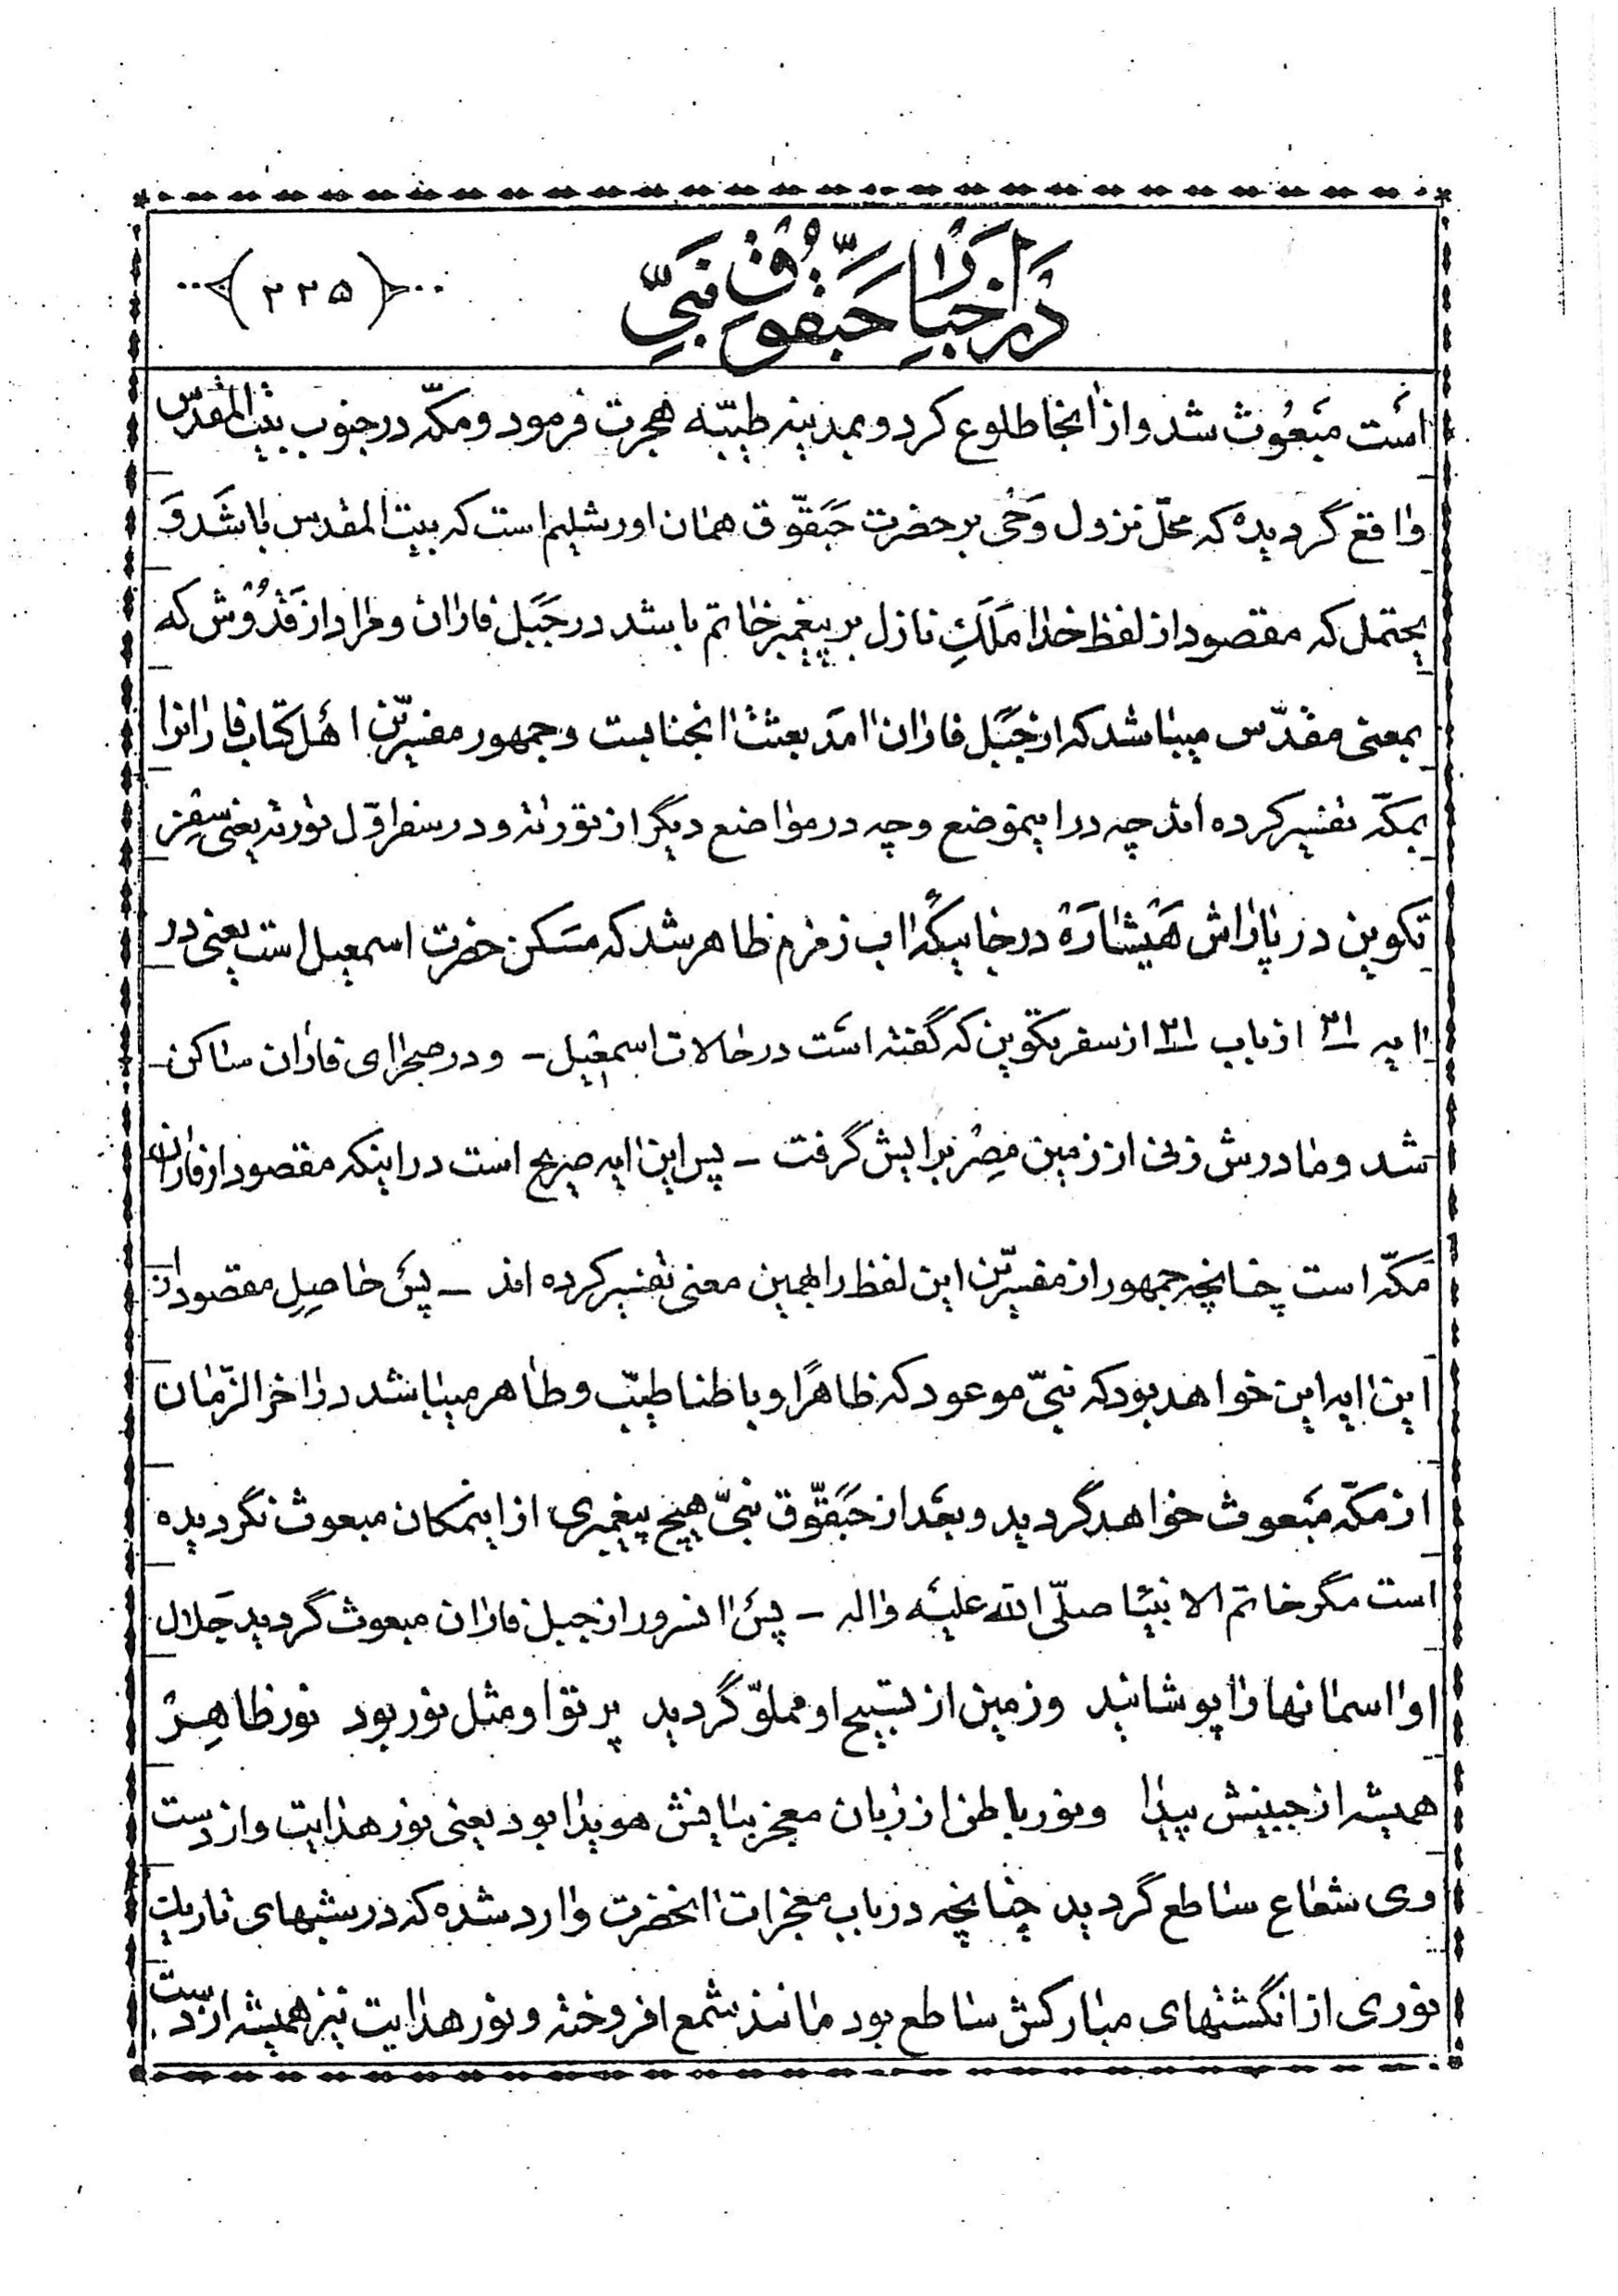 در اخبار حبقوق نبی
(۲۲۵)
است مبعوث شد و از انجا طلوع کرد و بمدینه طیبّه هجرت فرمود و مکّه در جنوب بیت المقدس
واقع گردیده که محلّ نزول وحی بر حضرت حبقّوق همان اورشلیم است که بیت المقدس باشد و
یحتمل که مقصود از لفظ خدا ملکِ نازل بر پیغمبر خاتم باشد در جبل فاران و مراد از قدّوش که
بمعنی مقدّس میباشد که از جبل فاران امد بعثت انجنابست و جمهور مفسّرین اهل کتاب فارانرا
بمکّه تفسیر کرده اند چه در اینموضع و چه در مواضع دیگر از توراته و در سفر اوّل توراته یعنی سفر
تکوین در پاراش هیشاره در جائیکه اب زمزم ظاهر شد که مسکن حضرت اسمعیل است یعنی در
ایه ۲۱ از باب ۲۱ از سفر تکوین که گفته است در حالات اسمعیل – و در صحرای فاران ساکن
شد و مادرش زنی از زمین مصر برایش گرفت – پس این ایه صریح است در اینکه مقصود از فاران
مکّه است چنانچه جمهور از مفسّرین این لفظ را بهمین معنی تفسیر کرده اند – پس حاصل مقصود از
این ایه این خواهد بود که نبیّ موعود که ظاهرًا و باطنا طیّب و طاهر میباشد در اخر الزّمان
از مکّه مبعوث خواهد گردید و بعد از حبقّوق نبیّ هیچ پیغمبری از اینمکان مبعوث نگردیده
است مگر خاتم الانبیا صلّی الله علیه واله – پس انسرور از جبل فاران مبعوث گردید جلال
او اسمانها را پوشانید و زمین از تسبیح او مملوّ گردید پرتو او مثل نور بود نور ظاهر
همیشه از جبینش پیدا و نور باطن از زبان معجز بیانش هویدا بود یعنی نور هدایت و از دست
وی شعاع ساطع گردید چنانچه در باب معجزات انحضرت وارد شده که در شبهای تاریک
نوری از انگشتهای مبارکش ساطع بود مانند شمع افروخته و نور هدایت نیز همیشه از دست